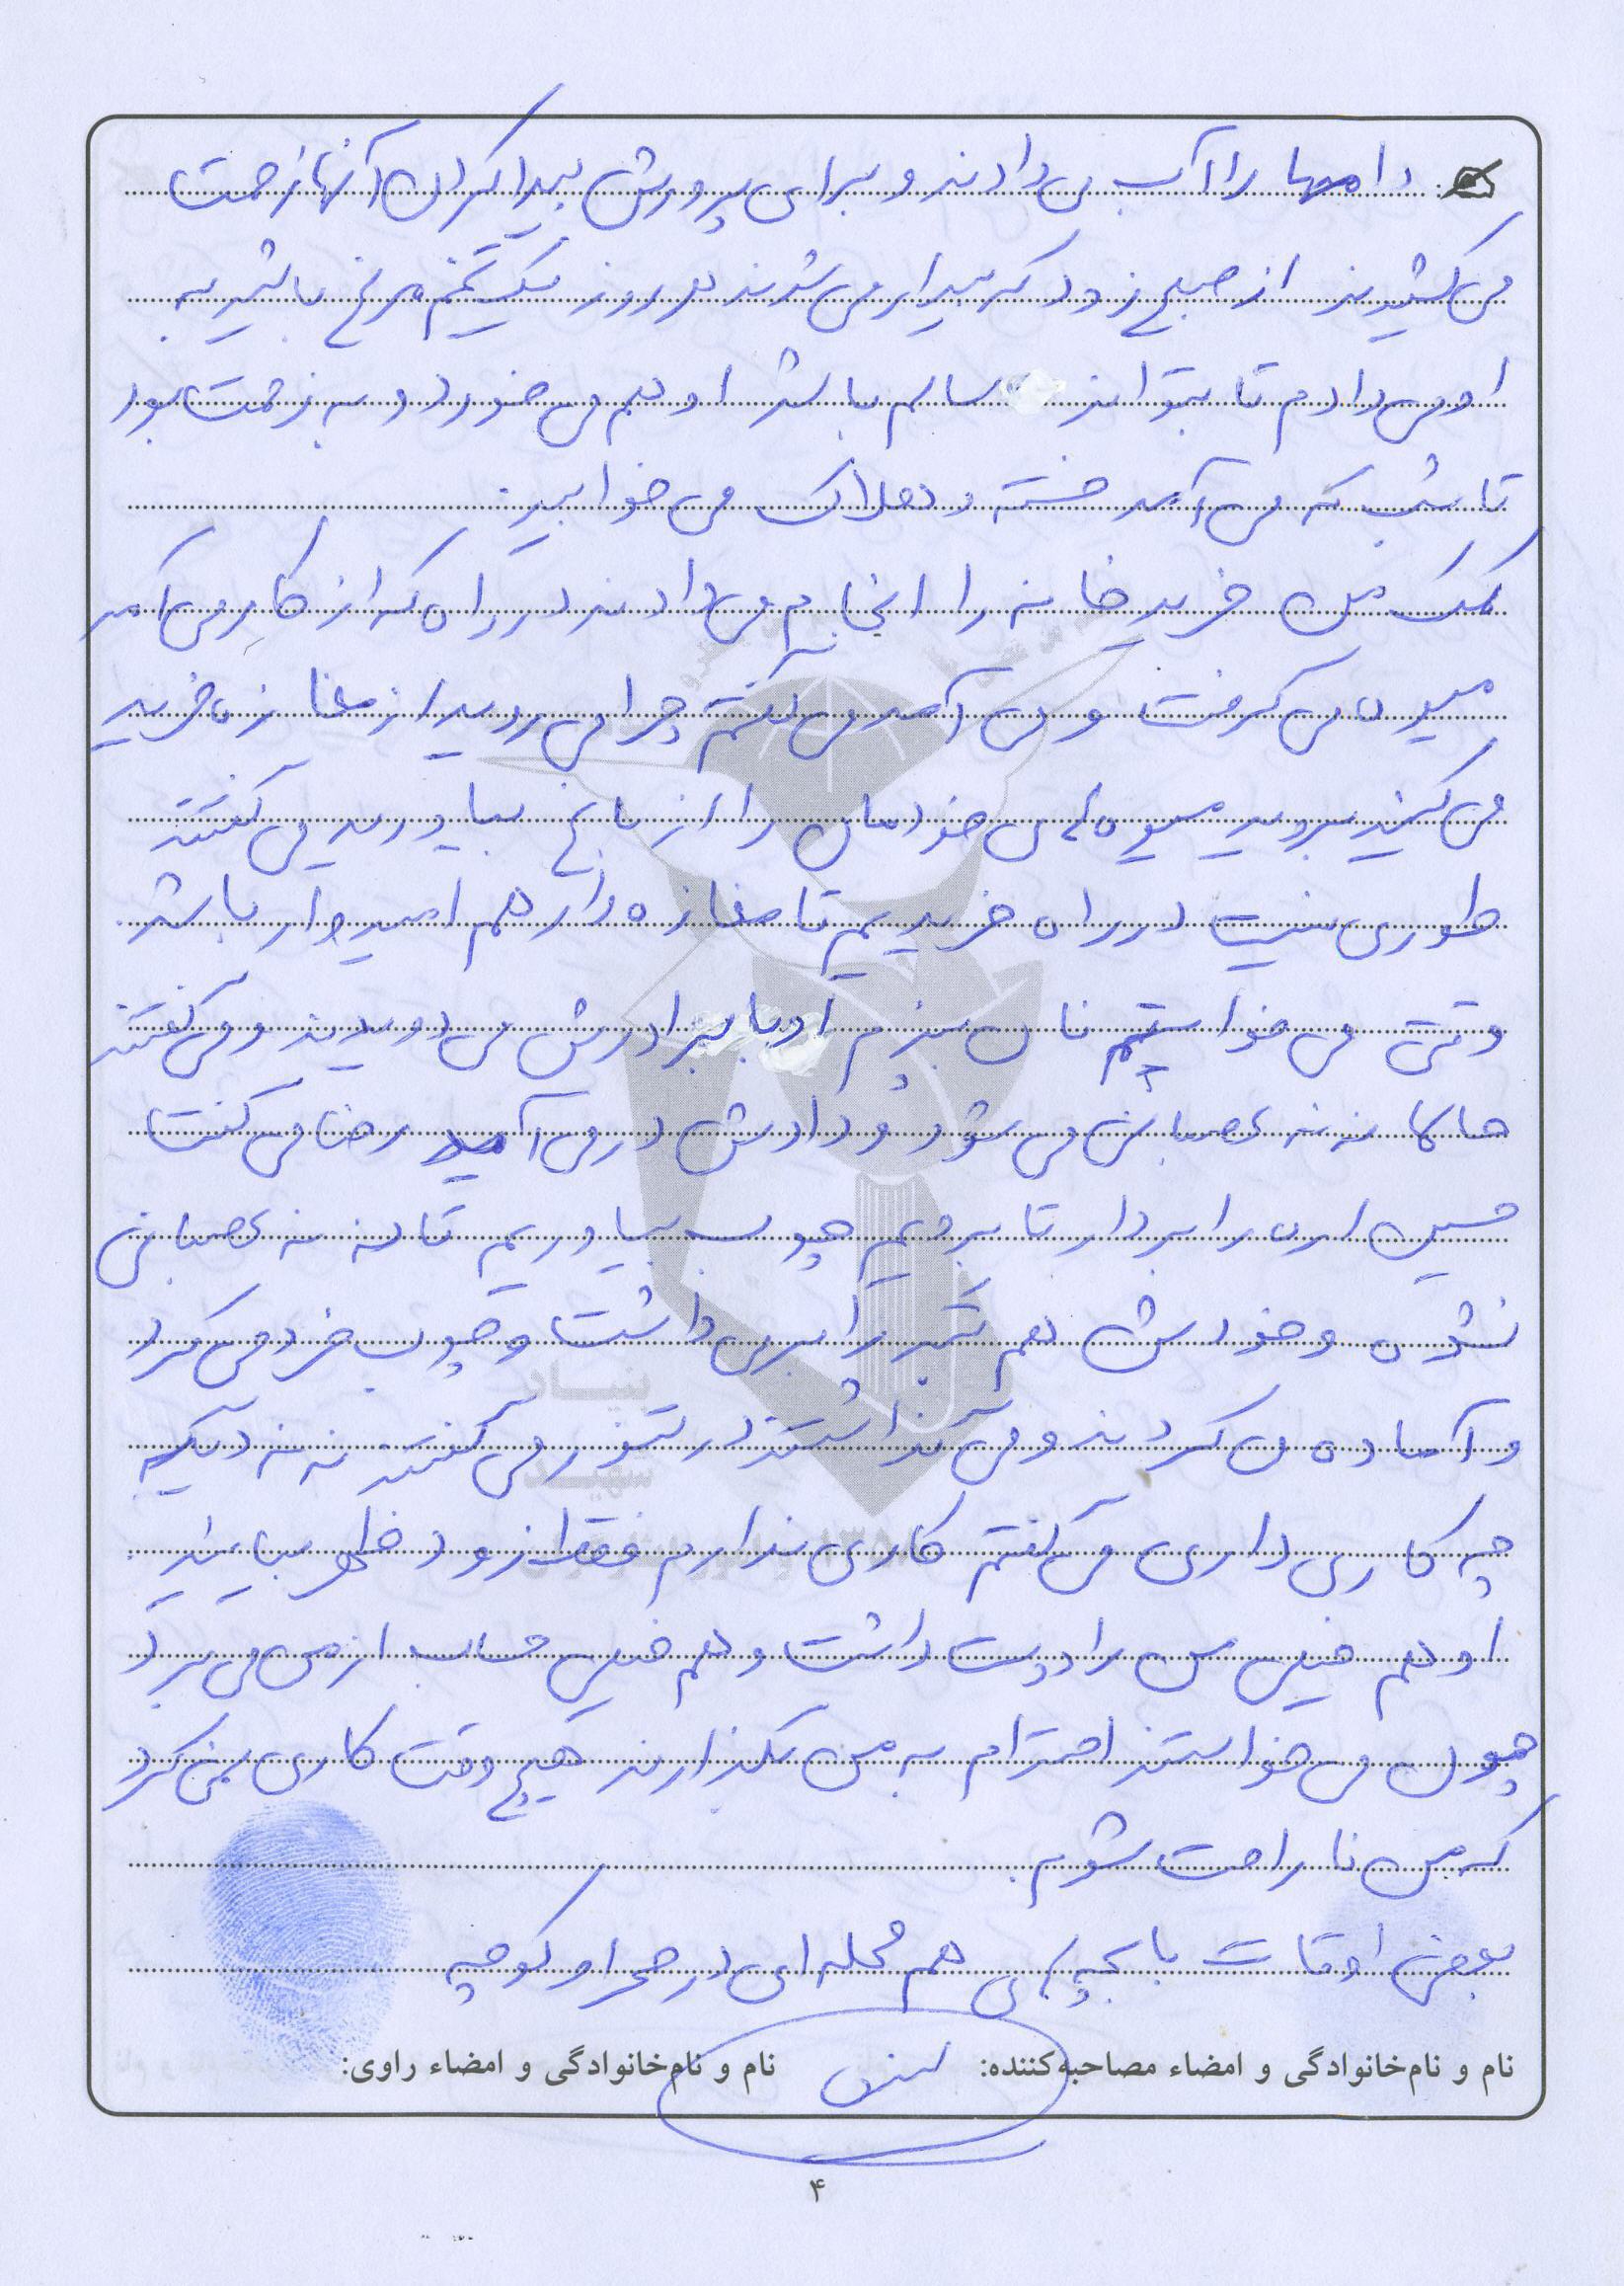 دامها را آب می دادند و برای پرورش پیدا کردن آنها زحمت
می کشیدند از صبح زود که بیدار می شدند هر روز یک تخم مرغ با شیر به
او می دادم تا بتواند سالم باشد او هم می خورد و به زحمت بود
تا شب که می آمد خسته و هلاک می خوابید.
کمک من خرید خانه را انجام می دادند در راه که از کار می آمد
میوه می گرفت و می آمد می گفتم چرا می روید از مغازه خرید
می کنید بروید میوه های خودمان را از باغ بیاورید می گفتند
طوری نیست در راه خریدیم تا مغازه دار هم امیدوار باشد.
وقتی می خواستم نان بپزم او با برادرش می دویدند و می گفتند
هاکا ننه عصبانی می شود و دادش در می آمد رضا می گفت
حسین اره را بردار تا برویم چوب بیاوریم تا ننه عصبانی
نشده و خودش هم تبر را بر می داشت و چوب خرد می کرد
و آماده می کردند و می گذاشتند در تنور می گفتند ننه دیگه
چه کاری داری می گفتم کاری ندارم فقط زود ظهر بیایید.
او هم خیلی من را دوست داشت و هم خیلی حساب از من می برد
چون می خواستند احترام به من بگذارند هیچ وقت کاری نمی کرد
که من ناراحت شوم.
بعضی اوقات با بچه های هم محله ای در صحرا و کوچه
نام و نام‌خانوادگی و امضاء مصاحبه‌کننده: نام و نام‌خانوادگی و امضاء راوی:
۴
بنیاد
شهید